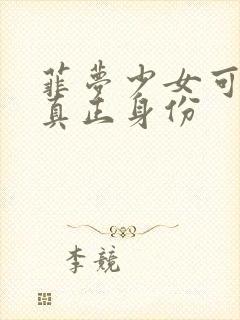 菲梦少女可
真正身份
李竞